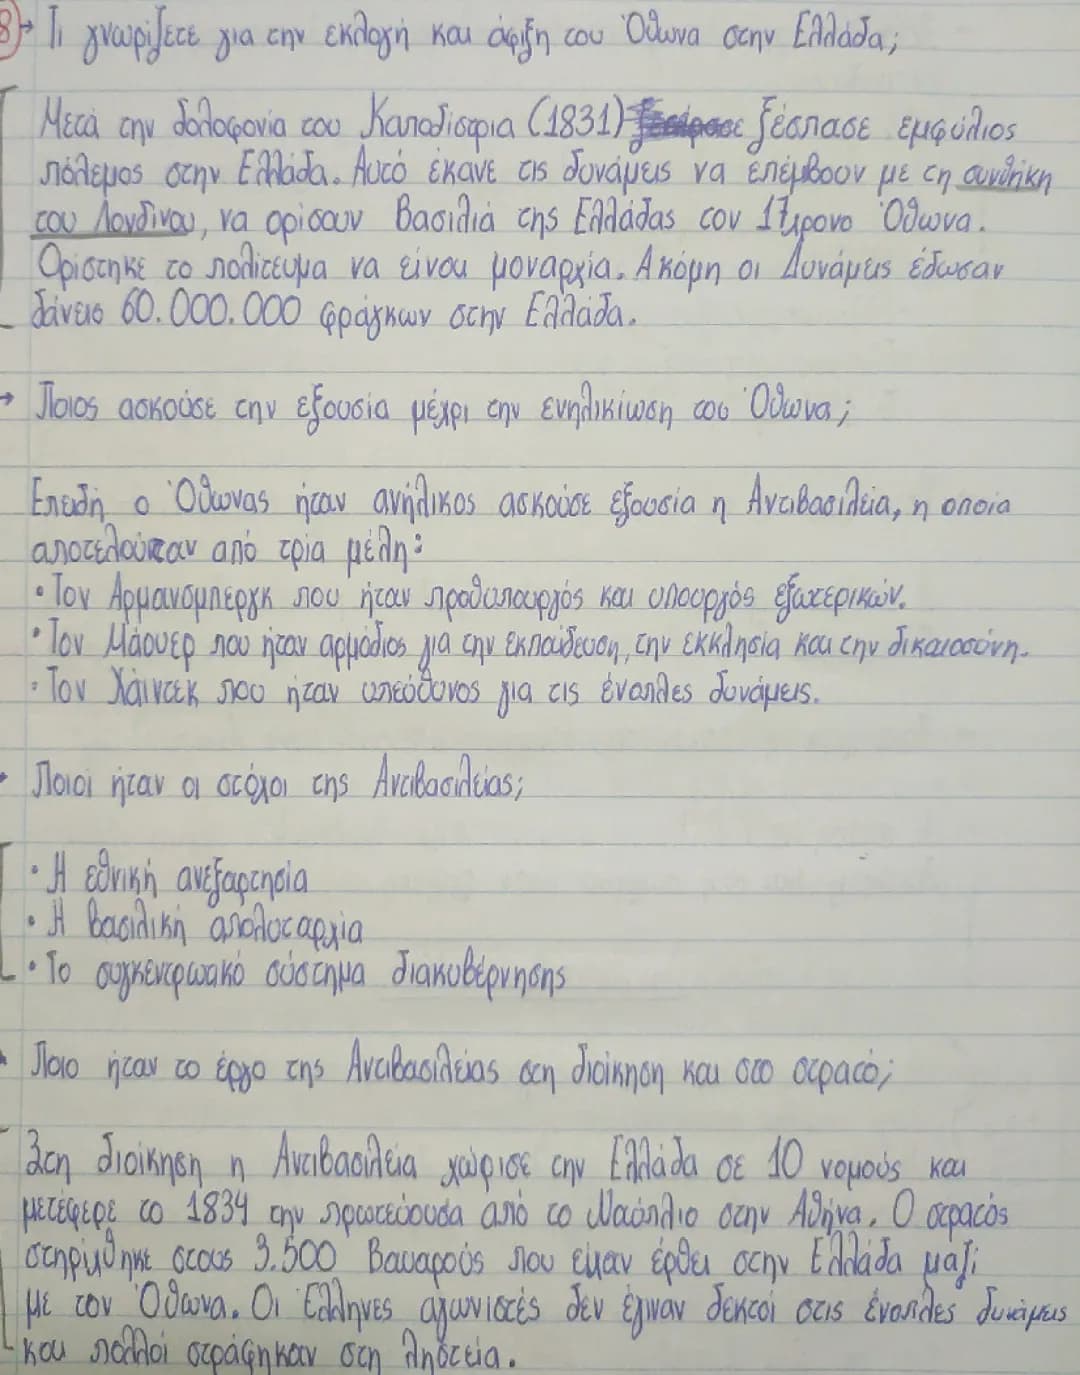 8 → Τι γνωρίζετε για την εκλογή και άφιξη του Όθωνα στην Ελλάδα;
Μετά την δολοφονία του Καποδίστρια (1831) ξέσπασε εμφύλιος
πόλεμος στην Ελλάδα. Αυτό έκανε τις δυνάμεις να επέμβουν με τη συνθήκη
του Λονδίνου, να ορίσουν Βασιλιά της Ελλάδας τον 17χρονο Όθωνα.
Ορίστηκε το πολίτευμα να είναι μοναρχία. Ακόμη οι Δυνάμεις έδωσαν
δάνειο 60.000.000 φράγκων στην Ελλάδα.
→ Ποιος ασκούσε την εξουσία μέχρι την ενηλικίωση του Όθωνα;
Επειδή ο Όθωνας ήταν ανήλικος ασκούσε εξουσία η Αντιβασιλεία, η οποία
αποτελούταν από τρία μέλη:
• Τον Αρμανσμπεργκ που ήταν πρωθυπουργός και υπουργός εξωτερικών.
• Τον Μάουερ που ήταν αρμόδιος για την εκπαίδευση, την εκκλησία και την δικαιοσύνη.
• Τον Χάιντεκ που ήταν υπεύθυνος για τις ένοπλες δυνάμεις.
Ποιοι ήταν οι στόχοι της Αντιβασιλείας;
• Η εθνική ανεξαρτησία
• Η βασιλική απολυταρχία
• Το συγκεντρωτικό σύστημα διακυβέρνησης
Ποιο ήταν το έργο της Αντιβασιλείας στη διοίκηση και στο στρατό;
Στη διοίκηση η Αντιβασιλεία χώρισε την Ελλάδα σε 10 νομούς και
μετέφερε το 1834 την πρωτεύουσα από το Ναύπλιο στην Αθήνα. Ο στρατός
στηρίχθηκε στους 3.500 Βαυαρούς που είχαν έρθει στην Ελλάδα μαζί
με τον Όθωνα. Οι Έλληνες αγωνιστές δεν έγιναν δεκτοί στις ένοπλες δυνάμεις
και πολλοί στράφηκαν στη ληστεία.